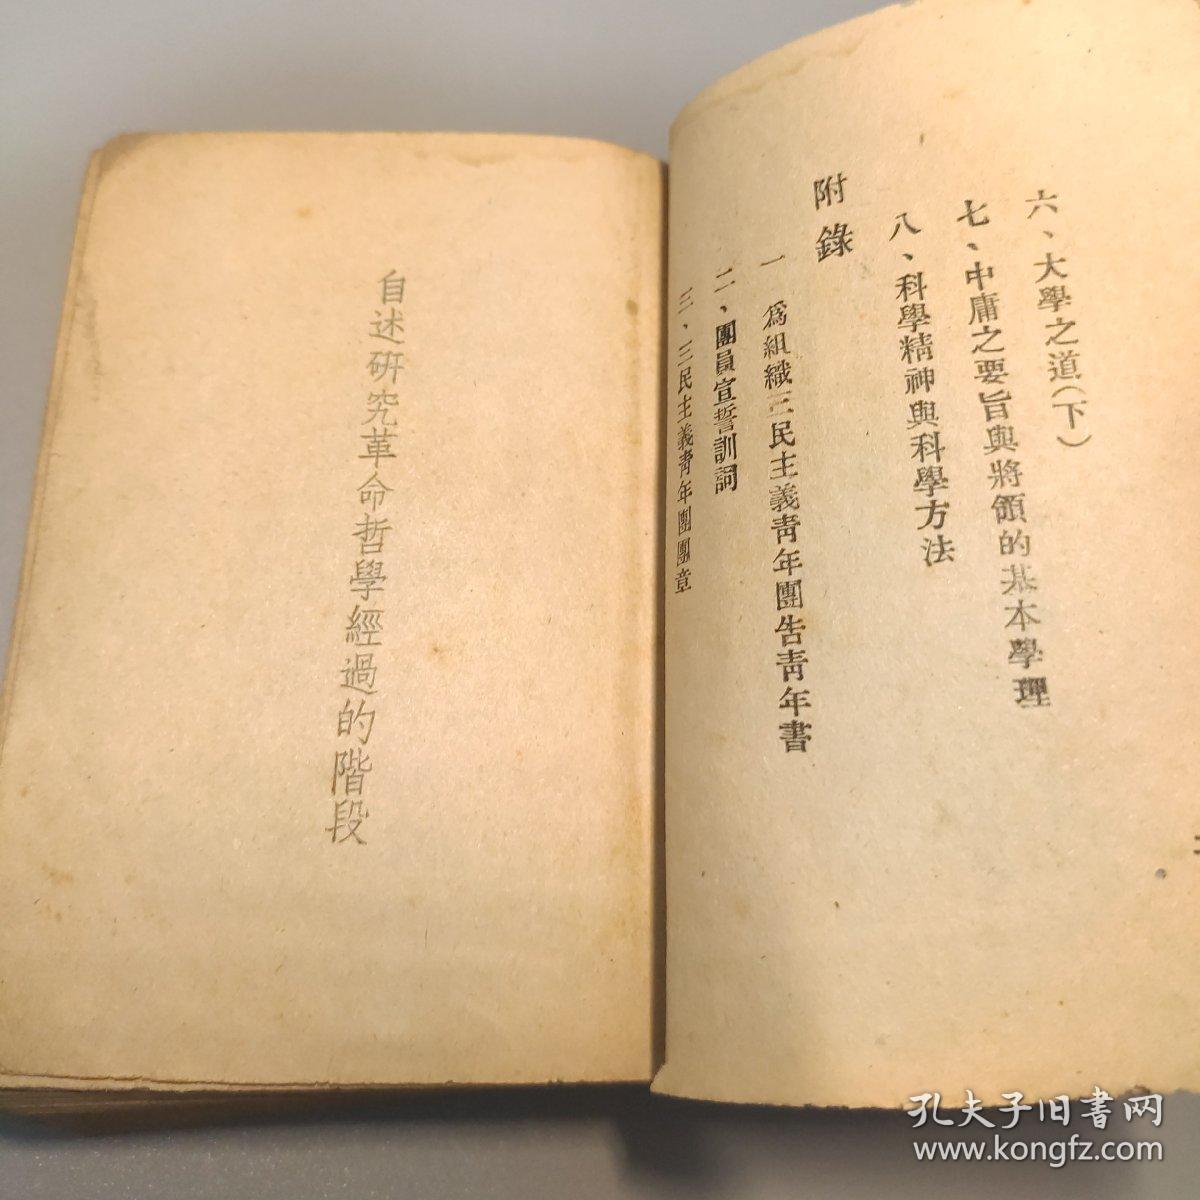 六、大學之道(下)
七、中庸之要旨與將領的基本學理
八、科學精神與科學方法
附錄
一 爲組織三民主義靑年團告靑年書
二、團員宣誓訓詞
三、三民主義靑年團團章
自述研究革命哲學經過的階段
孔夫子旧書网
www.kongfz.com